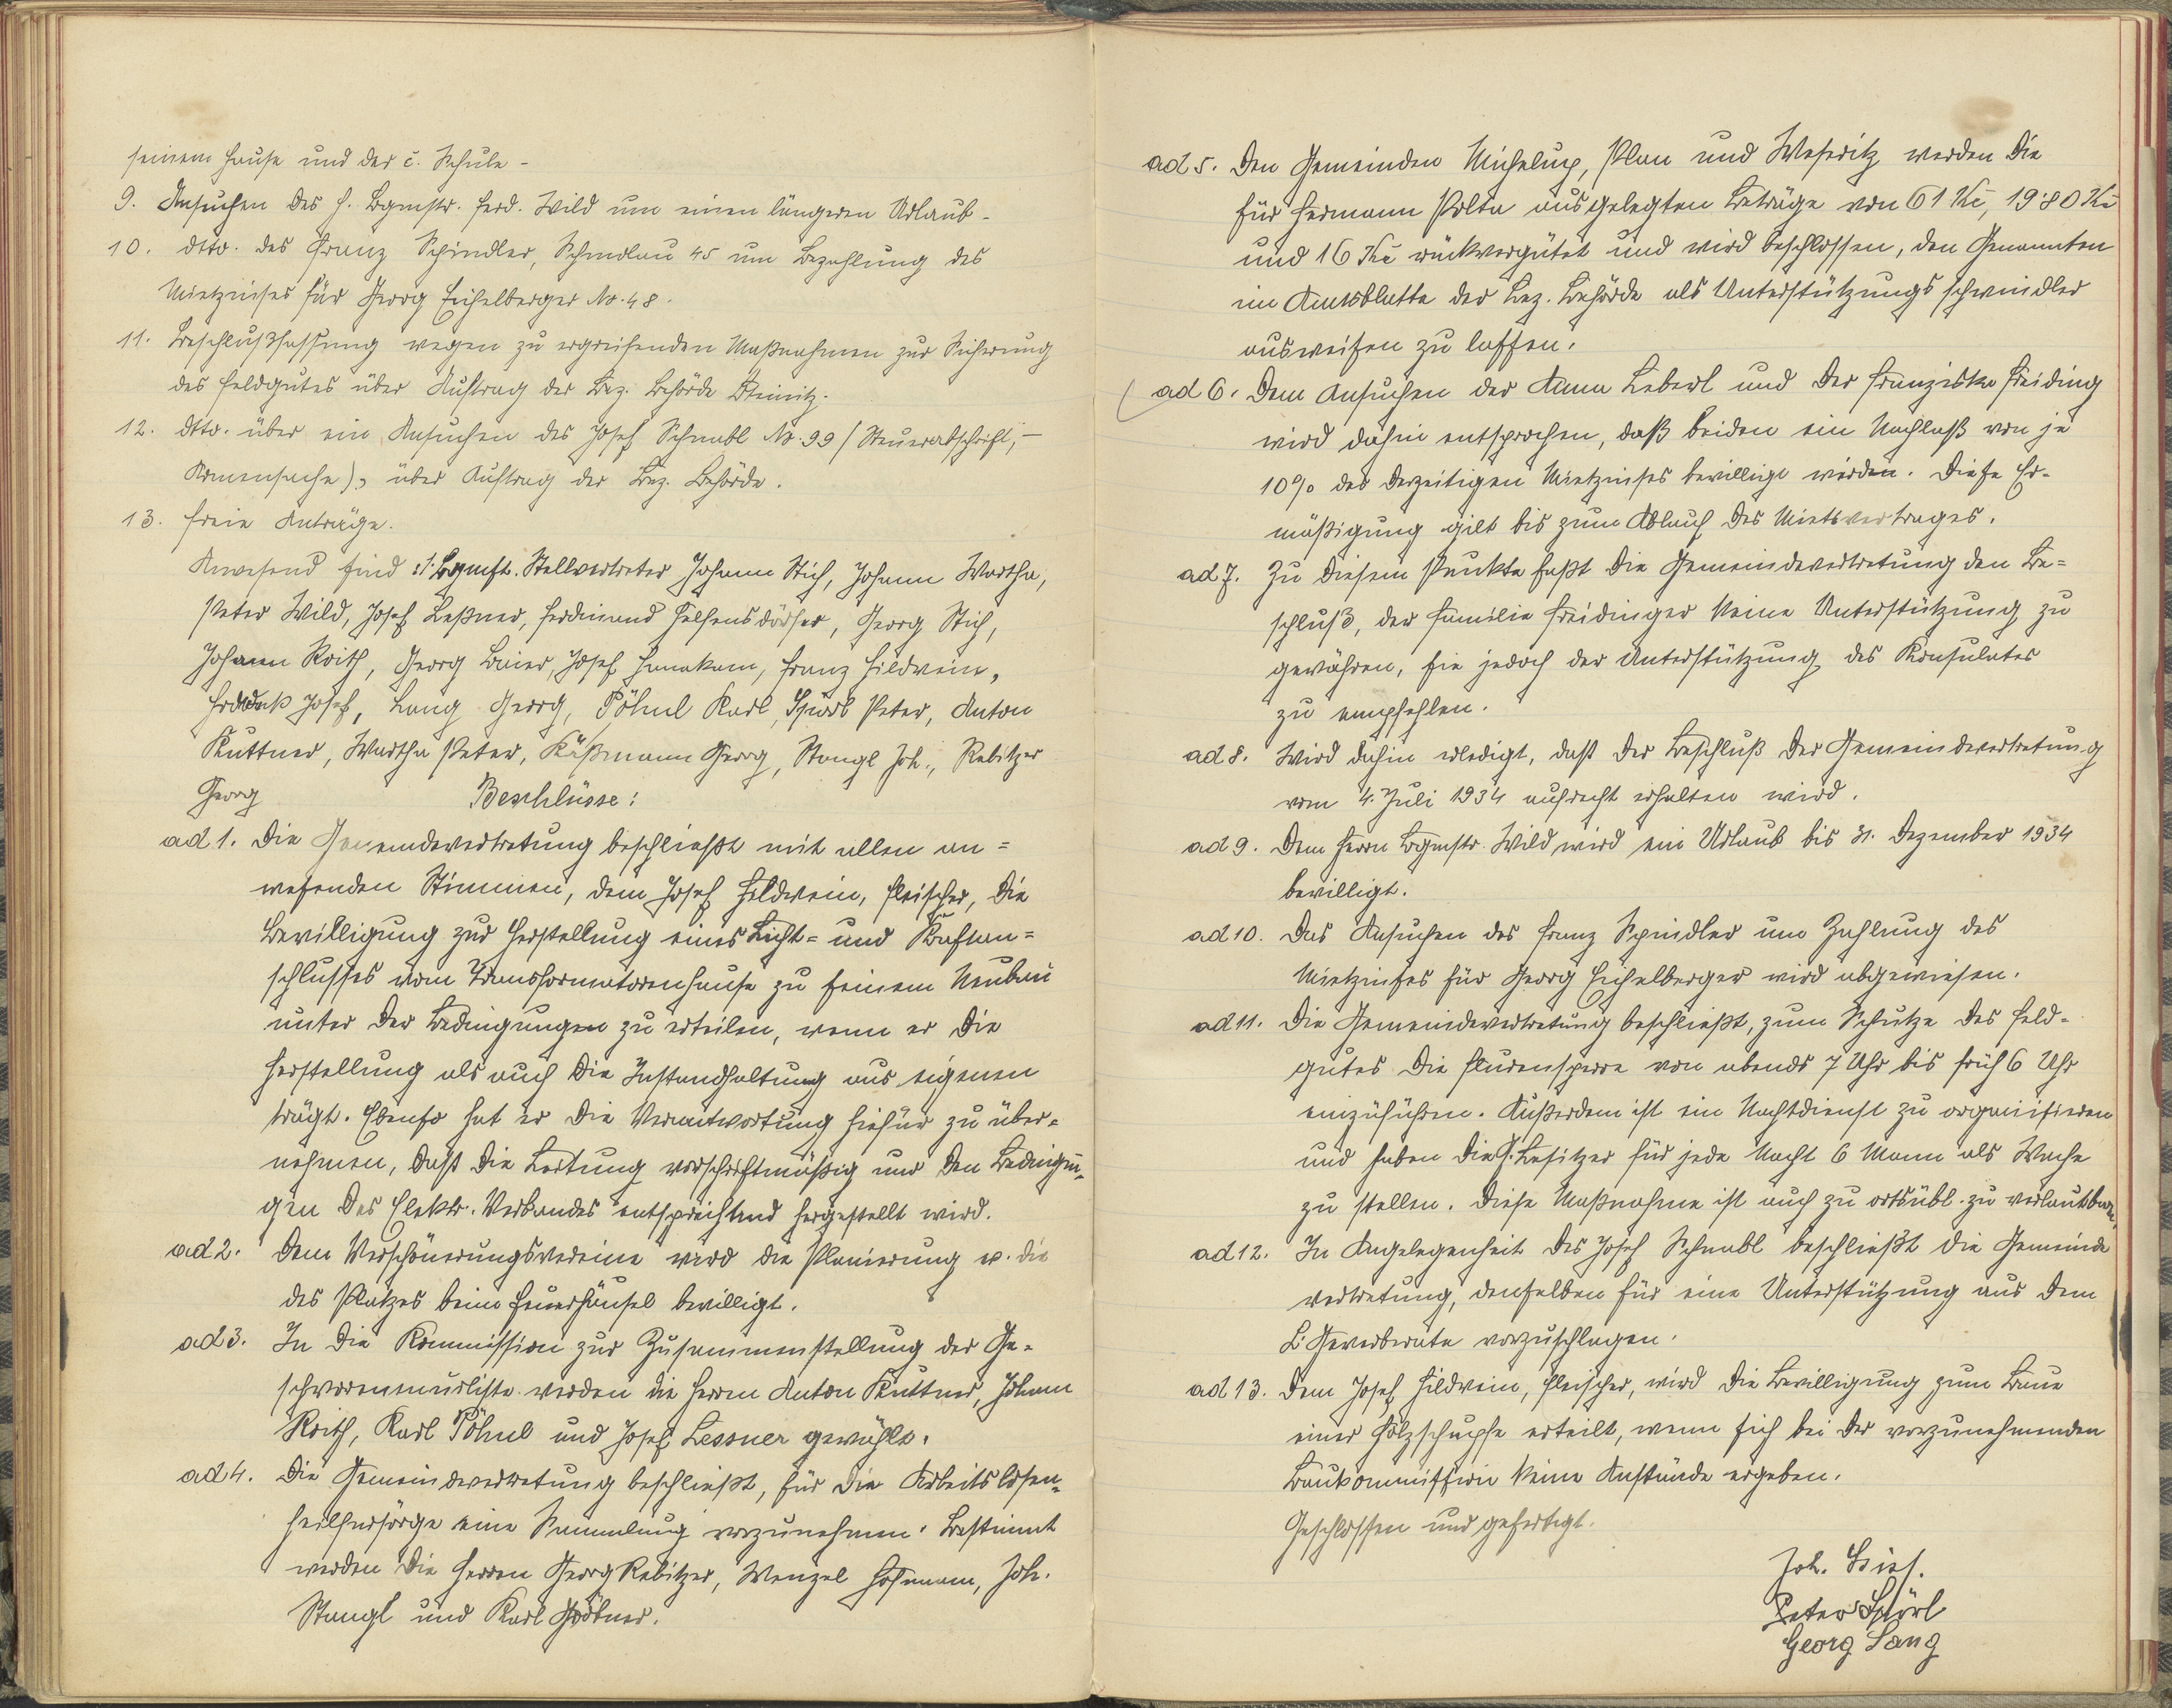 seinem Hause und der č. Schule -
9. Ansuchen des H. Bgmstr. Ferd. Wild um einen längeren Urlaub -
10. dtto. des Franz Schindler, 45 um Bezahlung des
Mietzinses für Georg Eichelberger No. 48.
11. Beschlußfassung wegen zu ergreifenden Maßnahmen zur Sicherung
des Feldgutes über Auftrag der Bez. Behörde
12. dtto. über ein Ansuchen des Josef Schnabl No. 99 (Steuerabschrift, -
Armensache), über Auftrag der Bez. Behörde.
13. freie Anträge.
Anwesend sind: 1. Bgmst. Stellvertreter Johann Stich, Johann Wartha,
Peter Wild, Josef Leßner, Ferdinand Helfensdörfer, Georg Stich,
Johann Roith, Georg Baier, Josef Hanakam, Franz Hildwein,
Josef, Lang Georg, Pöhnl Karl, Spörl Peter, Anton
Kuttner, Wartha Peter, Käßmann Georg, Stangl Joh., Rebitzer
Georg
Beschlüsse:
ad 1. Die Gemeindevertretung beschließt mit allen an=
wesenden Stimmen, dem Josef Hildwein, Fleischer, die
Bewilligung zur Herstellung eines Licht= und Kraftan=
schlusses vom Transformatorenhause zu seinem Neubau
unter der Bedingungen zu erteilen, wenn er die
Herstellung als auch die Instandhaltung aus eigenem
trägt. Ebenso hat er die Verantwortung hiefür zu über=
nehmen, daß die Leitung vorschriftmäßig und den Bedingun=
gen des Elektr. Verbandes entsprechend hergestellt wird.
ad 2. Dem Verschönerungsvereine wird die Planierung u. die
des Platzes beim Feuerhäusel bewilligt.
ad 3. In die Kommission zur Zusammenstellung der Ge=
schworenenurliste werden die Herren Anton Kuttner, Johann
Roith, Karl Pöhnl und Josef Lessner gewählt.
ad 4. Die Gemeindevertretung beschließt, für die Arbeitslosen=
fürsorge eine Sammlung vorzunehmen. Bestimmt
werden die Herren Georg Rebitzer, Wenzel Hofmann, Joh.
Stangl und Karl
ad 5. Den Gemeinden Michelup, Plan und Weseritz werden die
für Hermann Polta ausgelegten Beträge von 61 Kč, 19·80 Kč
und 16 Kč rückvergütet und wird beschlossen, den Genannten
im Amtsblatte der Bez. Behörde als Unterstützungsschwindler
ausweisen zu lassen.
ad 6. Dem Ansuchen der Anna Leberl und der Franziska Freiding
wird dahin entsprochen, daß beiden ein Nachlaß von je
10% des derzeitigen Mietzinses bewilligt werden. Diese Er=
mäßigung gilt bis zum Ablauf des Mietsvertrages.
ad 7. Zu diesem Punkte faßt die Gemeindevertretung den Be=
schluß, der Familie Freidinger keine Unterstützung zu
gewähren, sie jedoch der Unterstützung des Konsulates
zu empfehlen.
ad 8. Wird dahin erledigt, daß der Beschluß der Gemeindevertretung
vom 4. Juli 1934 aufrecht erhalten wird.
ad 9. Dem Herrn Bgmstr. Wild wird ein Urlaub bis 31. Dezember 1934
bewilligt.
ad 10. Das Ansuchen des Franz Schindler um Zahlung des
Mietzinses für Georg Eichelberger wird abgewiesen.
ad 11. Die Gemeindevertretung beschließt, zum Schutze des Feld=
gutes die Flurensperre von abends 7 Uhr bis früh 6 Uhr
einzuführen. Außerdem ist ein Nachtdienst zu organisieren
und haben die G. Besitzer für jede Nacht 6 Mann als Wache
zu stellen. Diese Maßnahme ist auch zu ortsübl. zu verlautbaren.
ad 12. In Angelegenheit des Josef Schnabl beschließt die Gemeinde
vertretung, denselben für eine Unterstützung aus dem
vorzuschlagen.
ad 13. Dem Josef Hildwein, Fleischer, wird die Bewilligung zum Baue
einer Holzschupfe erteilt, wenn sich bei der vorzunehmenden
Baukommission keine Anstände ergeben.
Geschlossen und gefertigt.
Joh. Stich.
Peter Spörl
Georg Lang